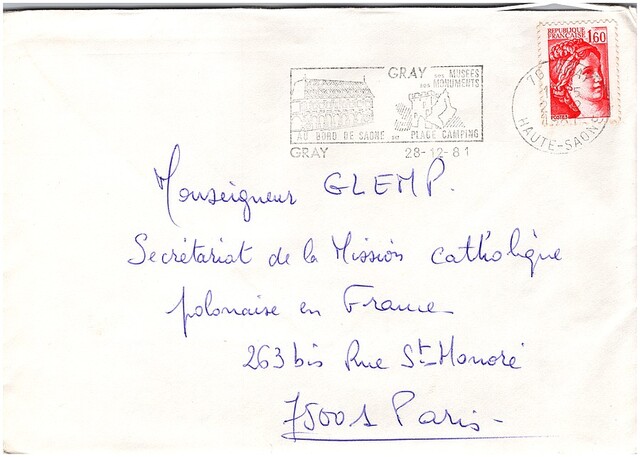 GRAY SES MUSEES
SES MONUMENTS
AU BORD DE SAONE SA PLAGE CAMPING
GRAY 28-12-81
REPUBLIQUE
FRANÇAISE 1,60
70
HAUTE-SAONE
Monseigneur GLEMP.
Secrétariat de la Mission catholique
polonaise en France
263 bis Rue St-Honoré
75001 Paris-